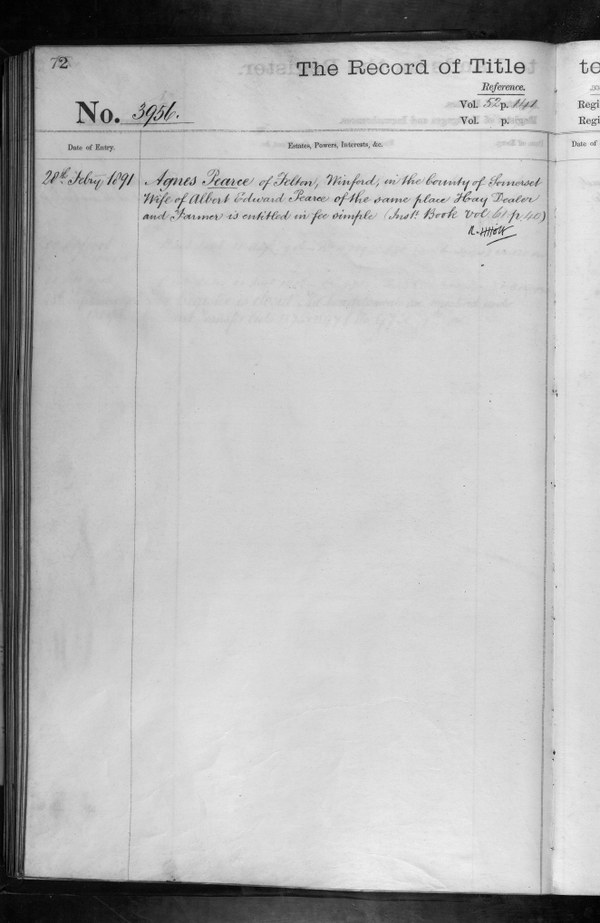 72
The Record of Title
Reference.
No. 3956.
Vol. 52 p. 141
Vol. p.
Date of Entry.
Estates, Powers, Interests, &c.
28th Febry 1891
Agnes Pearce of Felton, Winford, in the County of Somerset
Wife of Albert Edward Pearce of the same place Hay Dealer
and Farmer is entitled in fee simple (Inst. Book Vol 61 p. 40)
R. H. Holt
te
Regi
Regi
Date of